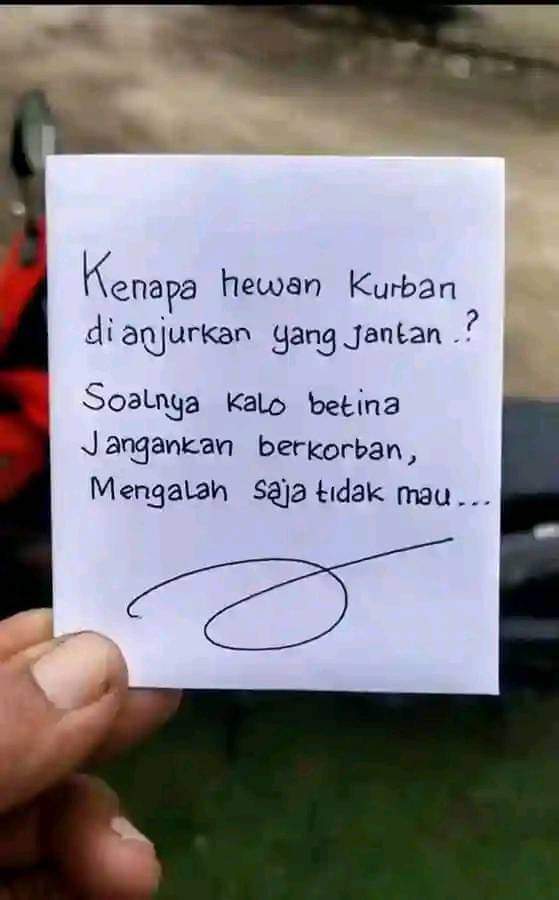 Kenapa hewan Kurban
dianjurkan yang jantan..?
Soalnya kalo betina
Jangankan berkorban,
Mengalah saja tidak mau...